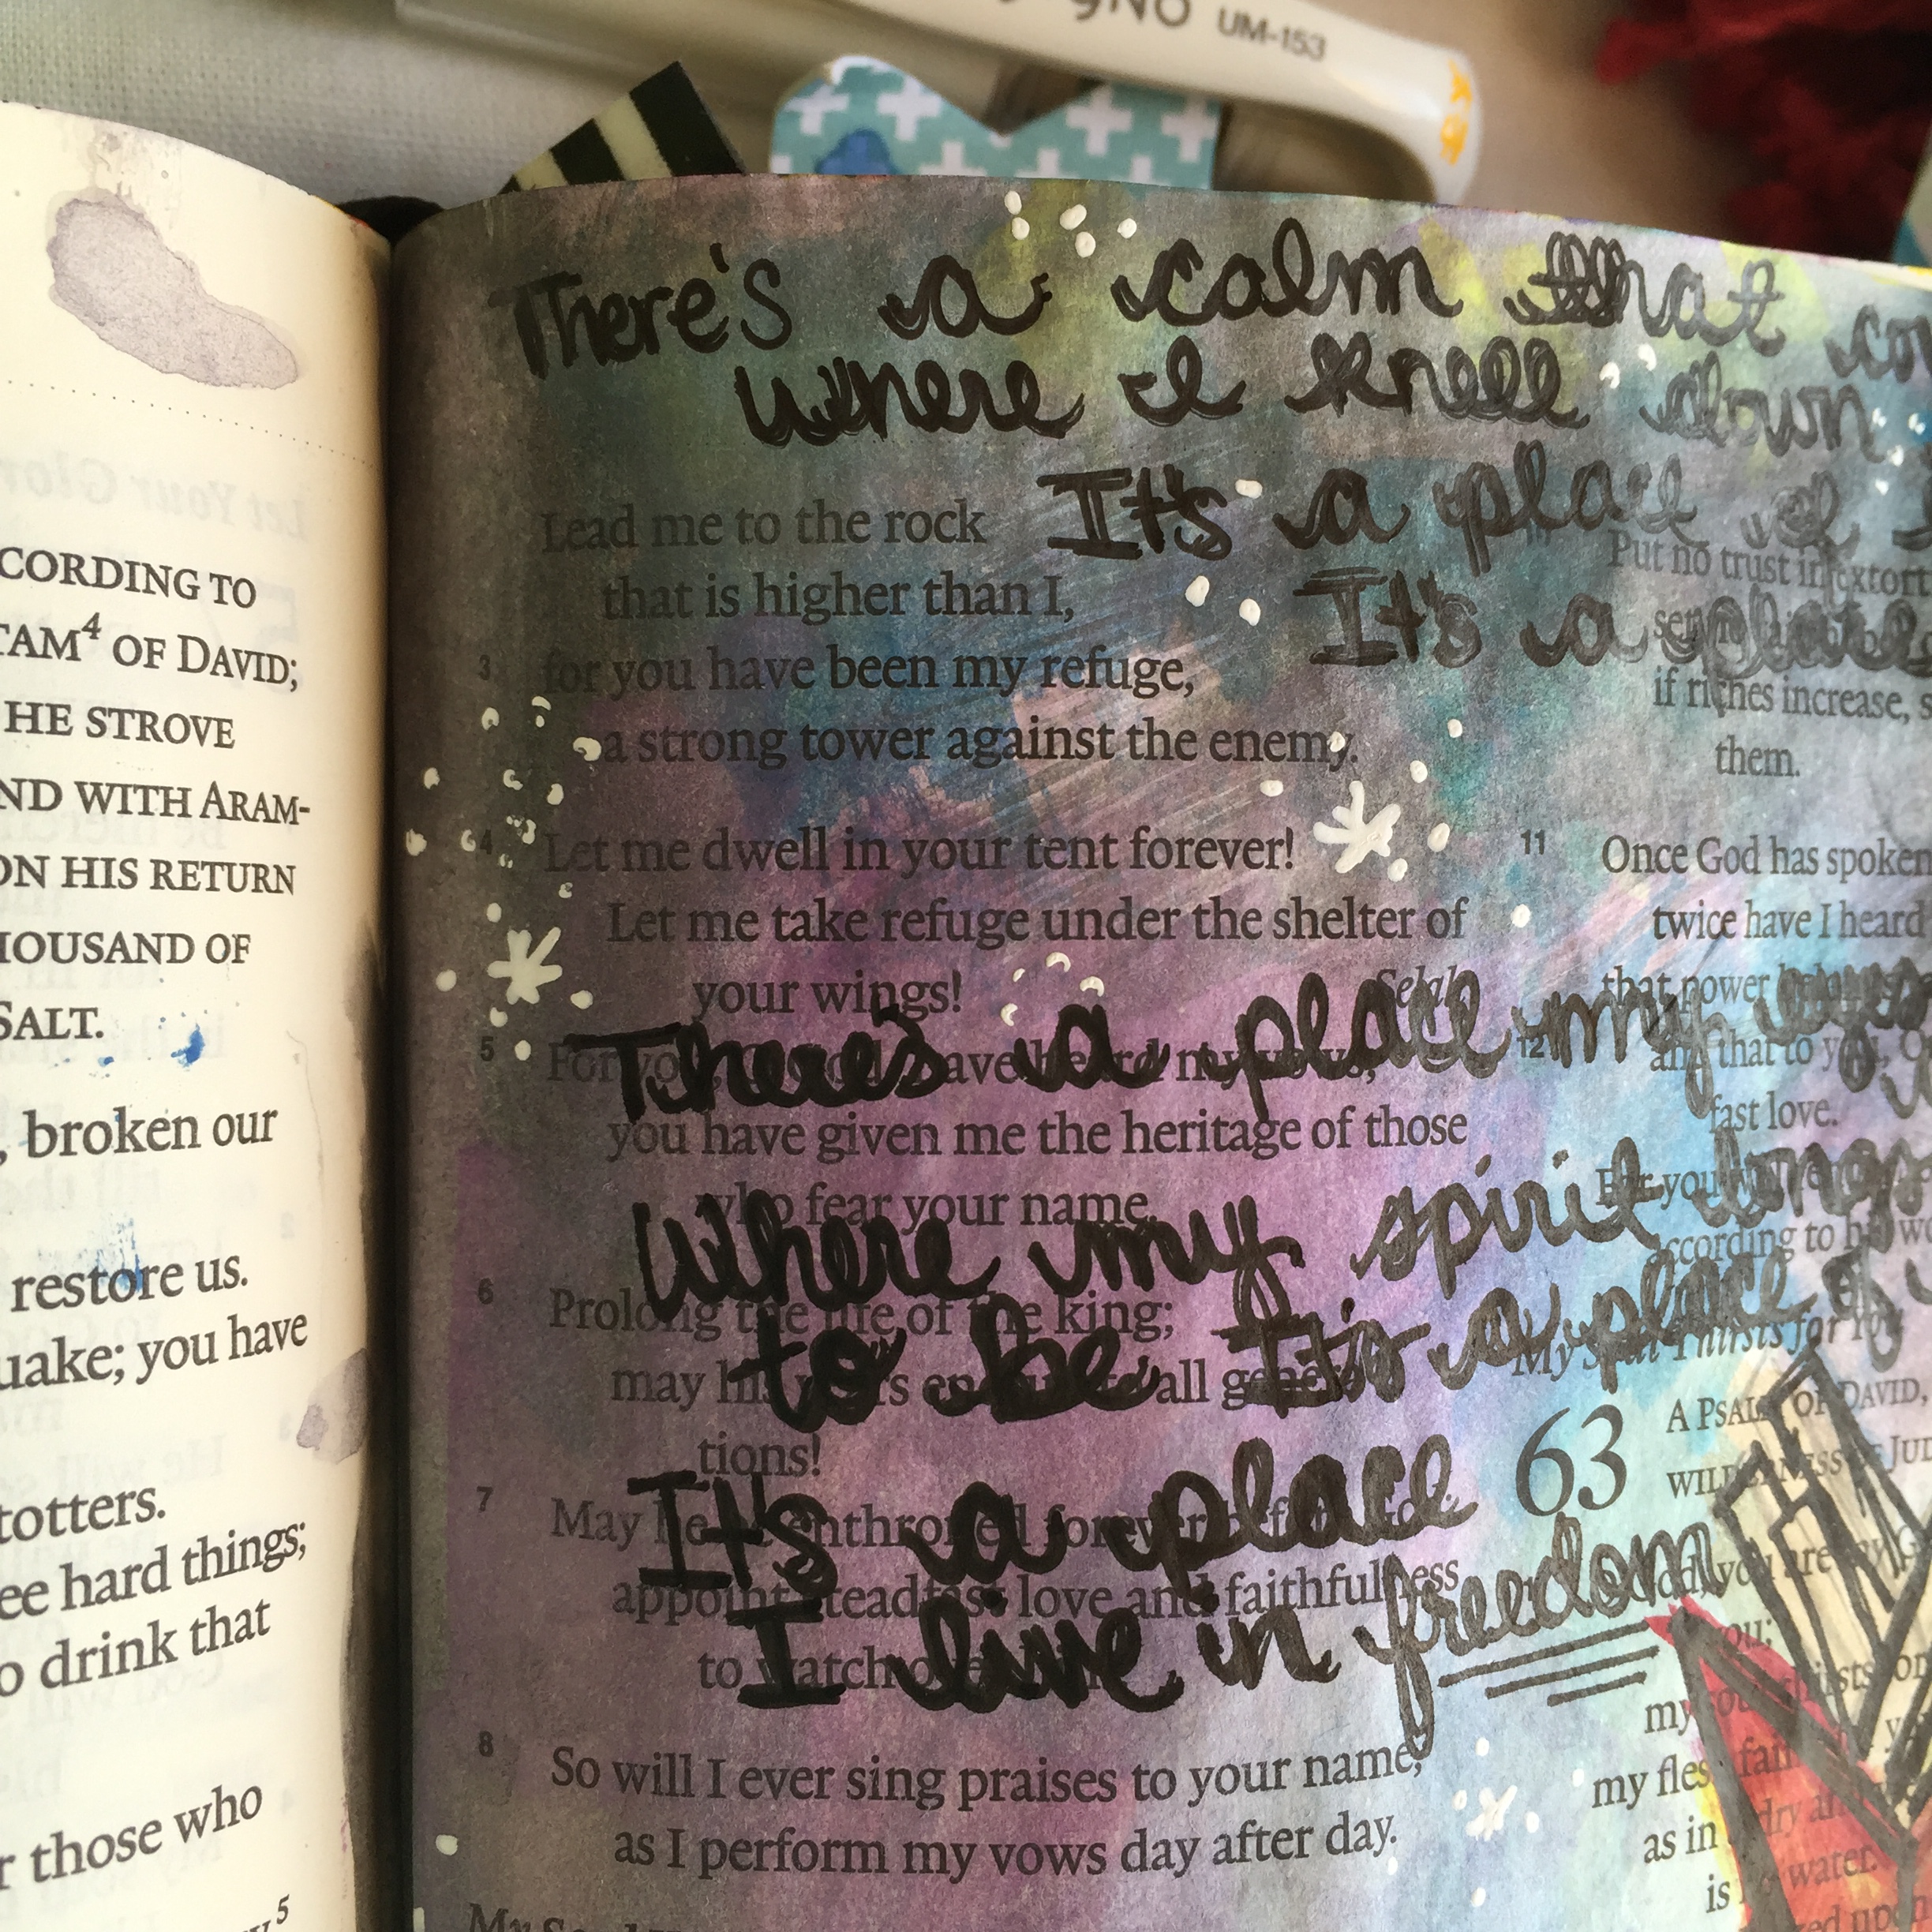 UM-153
There's a calm that
Where I kneel down
It's a place of
It's a place
There's a place my eyes
Where my spirit longs
to be It's a place of
It's a place
I live in freedom
CORDING TO
TAM⁴ OF DAVID;
HE STROVE
ND WITH ARAM-
ON HIS RETURN
HOUSAND OF
SALT.
, broken our
restore us.
uake; you have
totters.
ee hard things;
o drink that
r those who
5
Lead me to the rock
that is higher than I,
3 for you have been my refuge,
a strong tower against the enemy.
4 Let me dwell in your tent forever!
Let me take refuge under the shelter of
your wings! Selah
5 For you, have heard my vows;
you have given me the heritage of those
who fear your name.
6 Prolong the life of the king;
may his all genera-
tions!
7 May he be enthroned forever before
appoint steadfast love and faithfulness
to watch over
8 So will I ever sing praises to your name,
as I perform my vows day after day.
Put no trust in extort
if riches increase, s
them.
11 Once God has spoken
twice have I heard
that power belongs
12 and that to you, O
fast love.
For you
according to his w
My Soul Thirsts for You
63 A PSALM OF DAVID,
WILDERNESS OF JUD
you are my G
you;
my soul thirsts for
my flesh fain
as in a dry an
is no water.